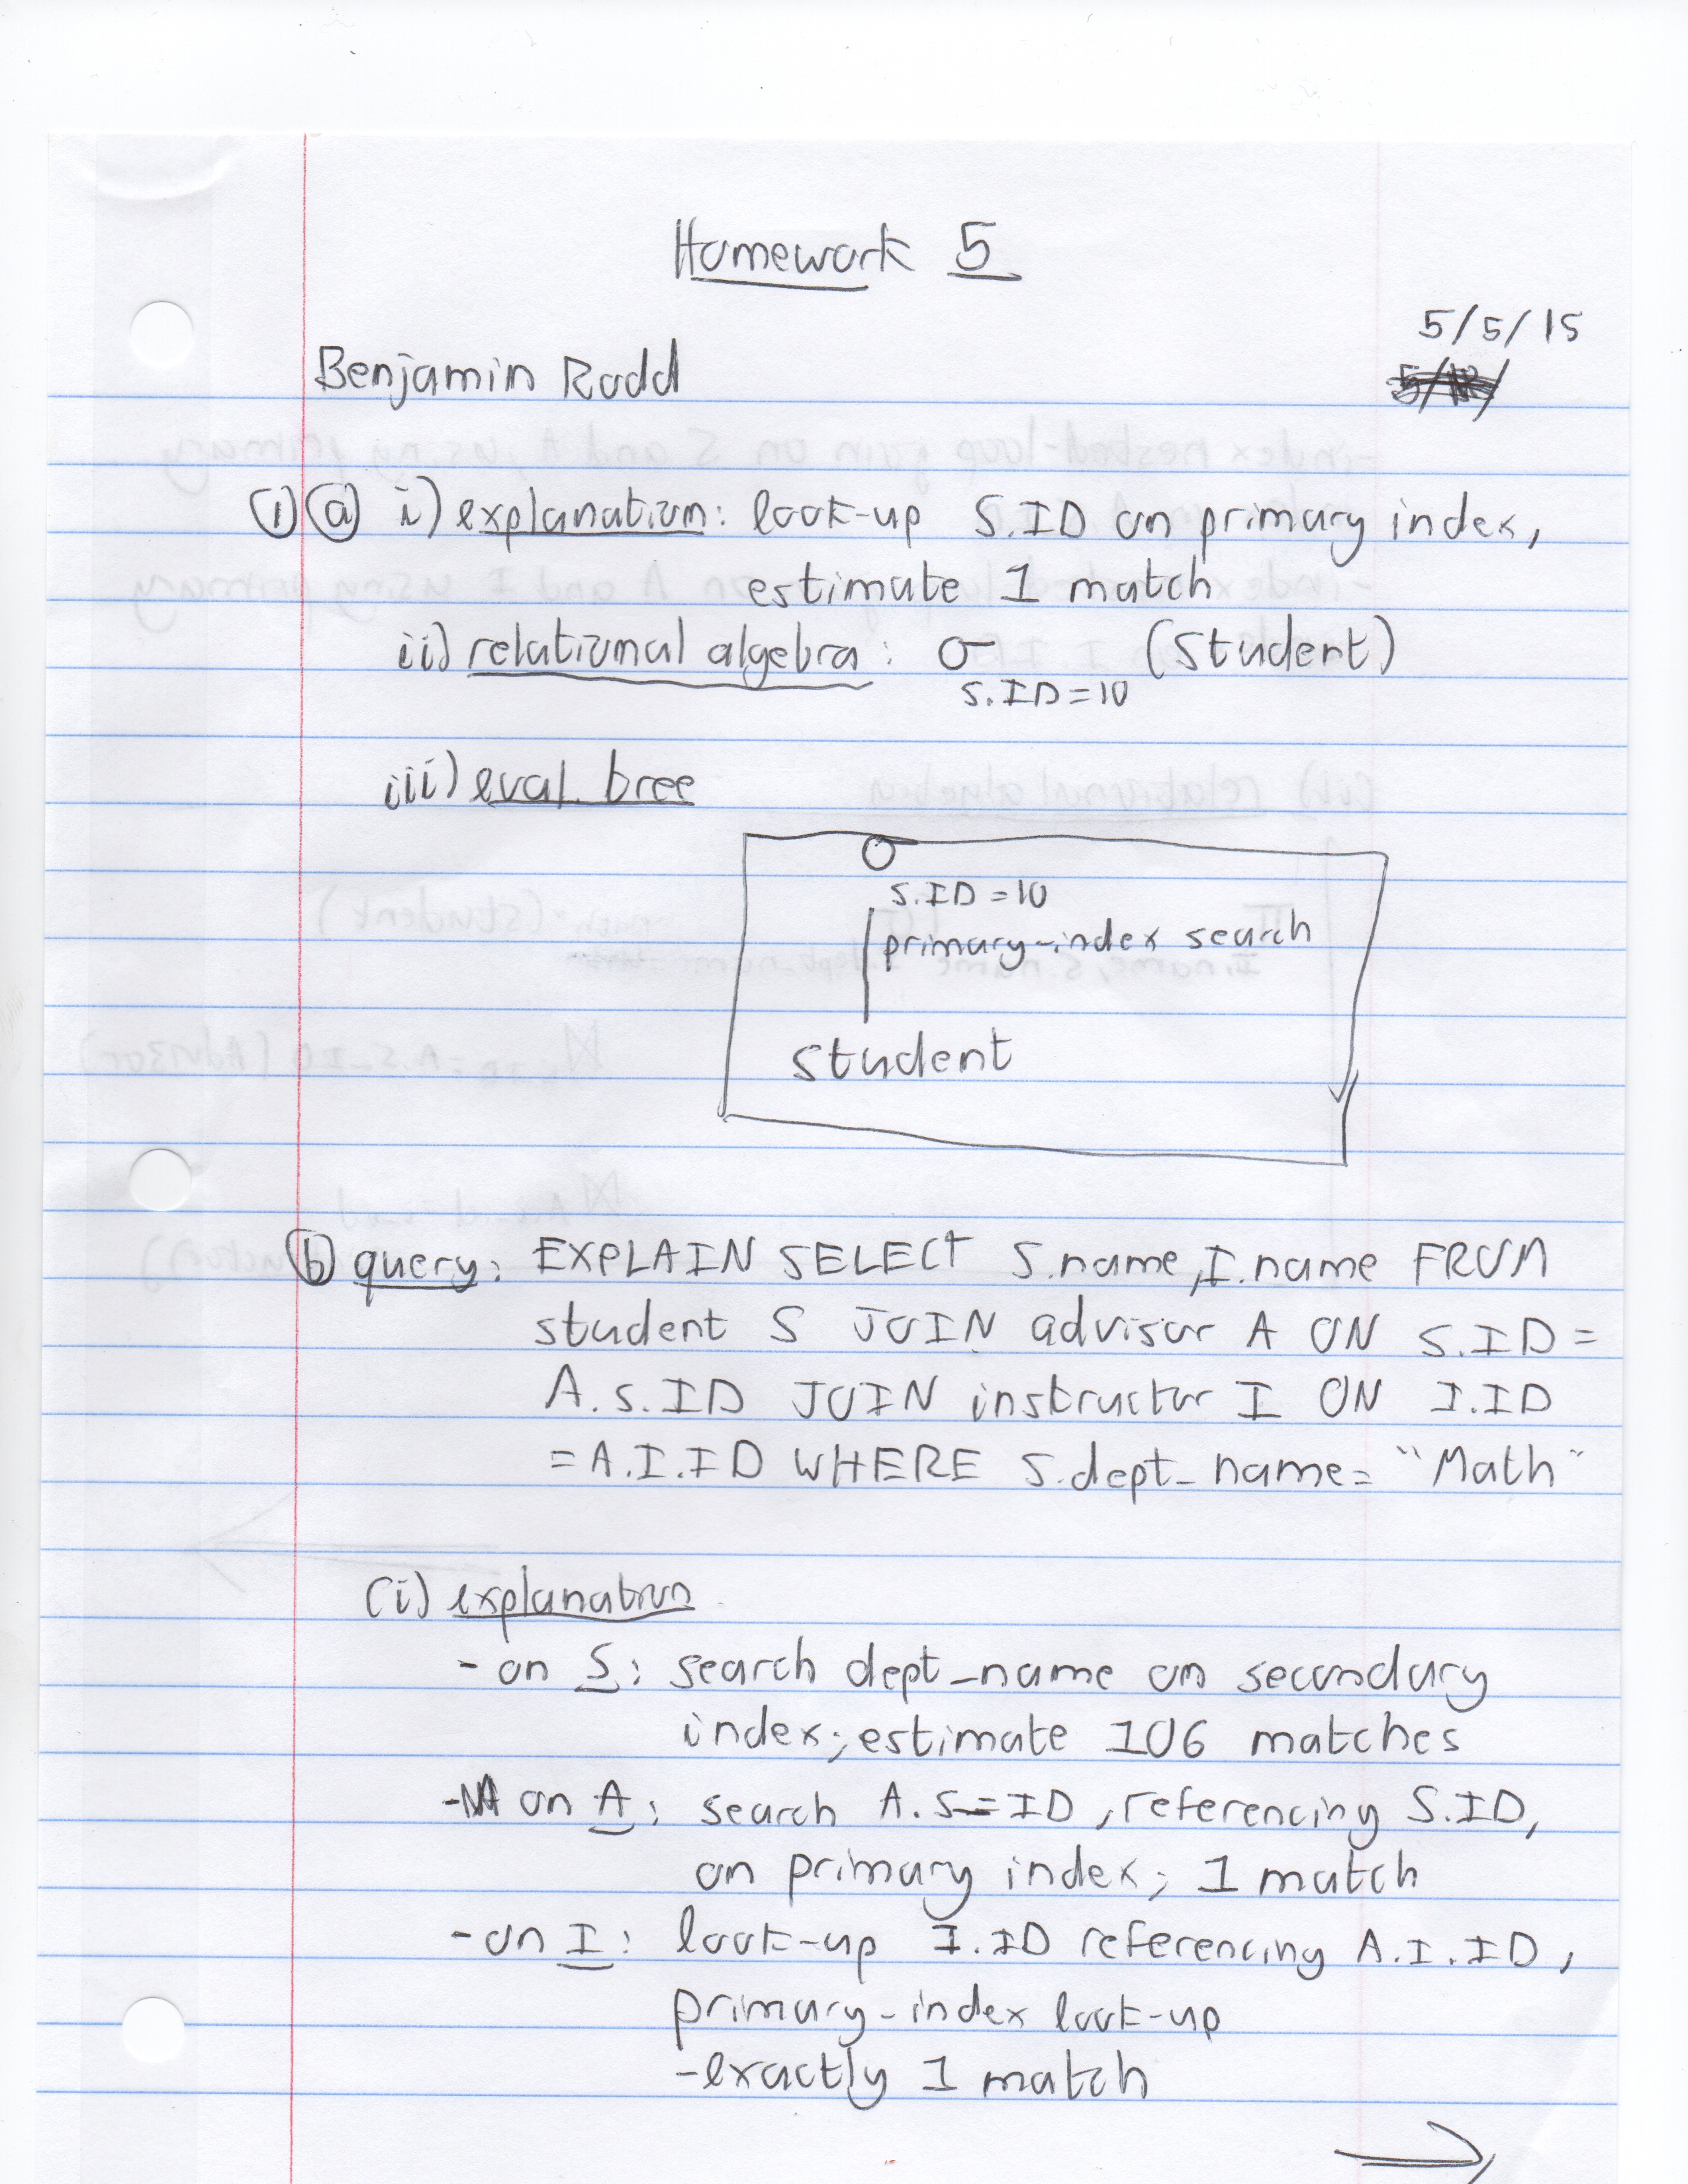 Homework 5
5/5/15
Benjamin Rodd
1 a i) explanation: look-up S.ID on primary index,
estimate 1 match
ii) relational algebra: σ S.ID=10 (Student)
iii) eval. tree
σ S.ID=10
primary-index search
student
b query: EXPLAIN SELECT S.name, I.name FROM
student S JOIN advisor A ON S.ID =
A.S.ID JOIN instructor I ON I.ID
= A.I.ID WHERE S.dept_name = "Math"
(i) explanation
- on S: search dept_name on secondary
index; estimate 106 matches
- on A: search A.S_ID, referencing S.ID,
on primary index; 1 match
- on I: look-up I.ID referencing A.I.ID,
primary-index look-up
- exactly 1 match
→